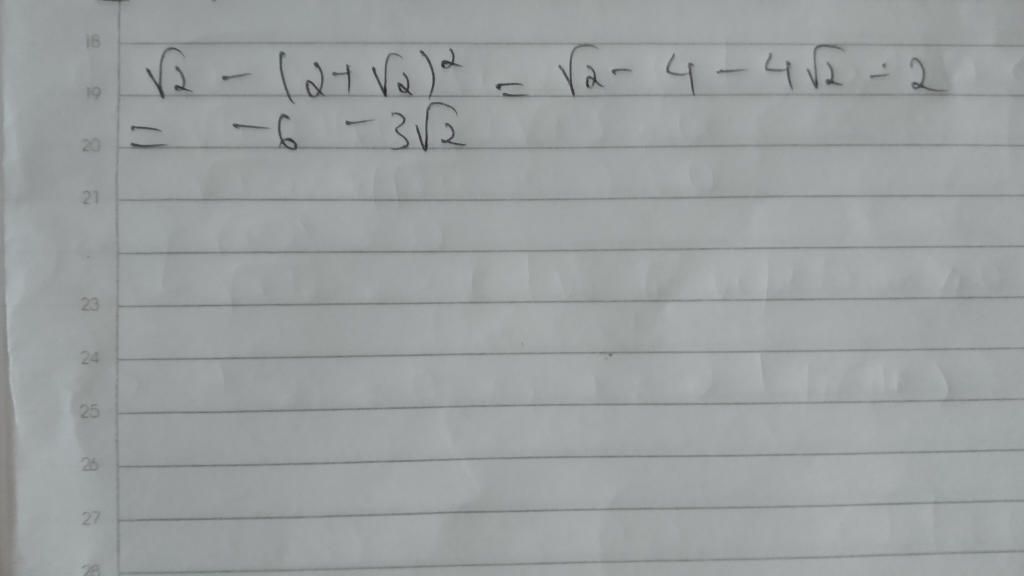 18
√2 - (2+√2)² = √2 - 4 - 4√2 - 2
19
= -6 -3√2
20
21
23
24
25
26
27
28